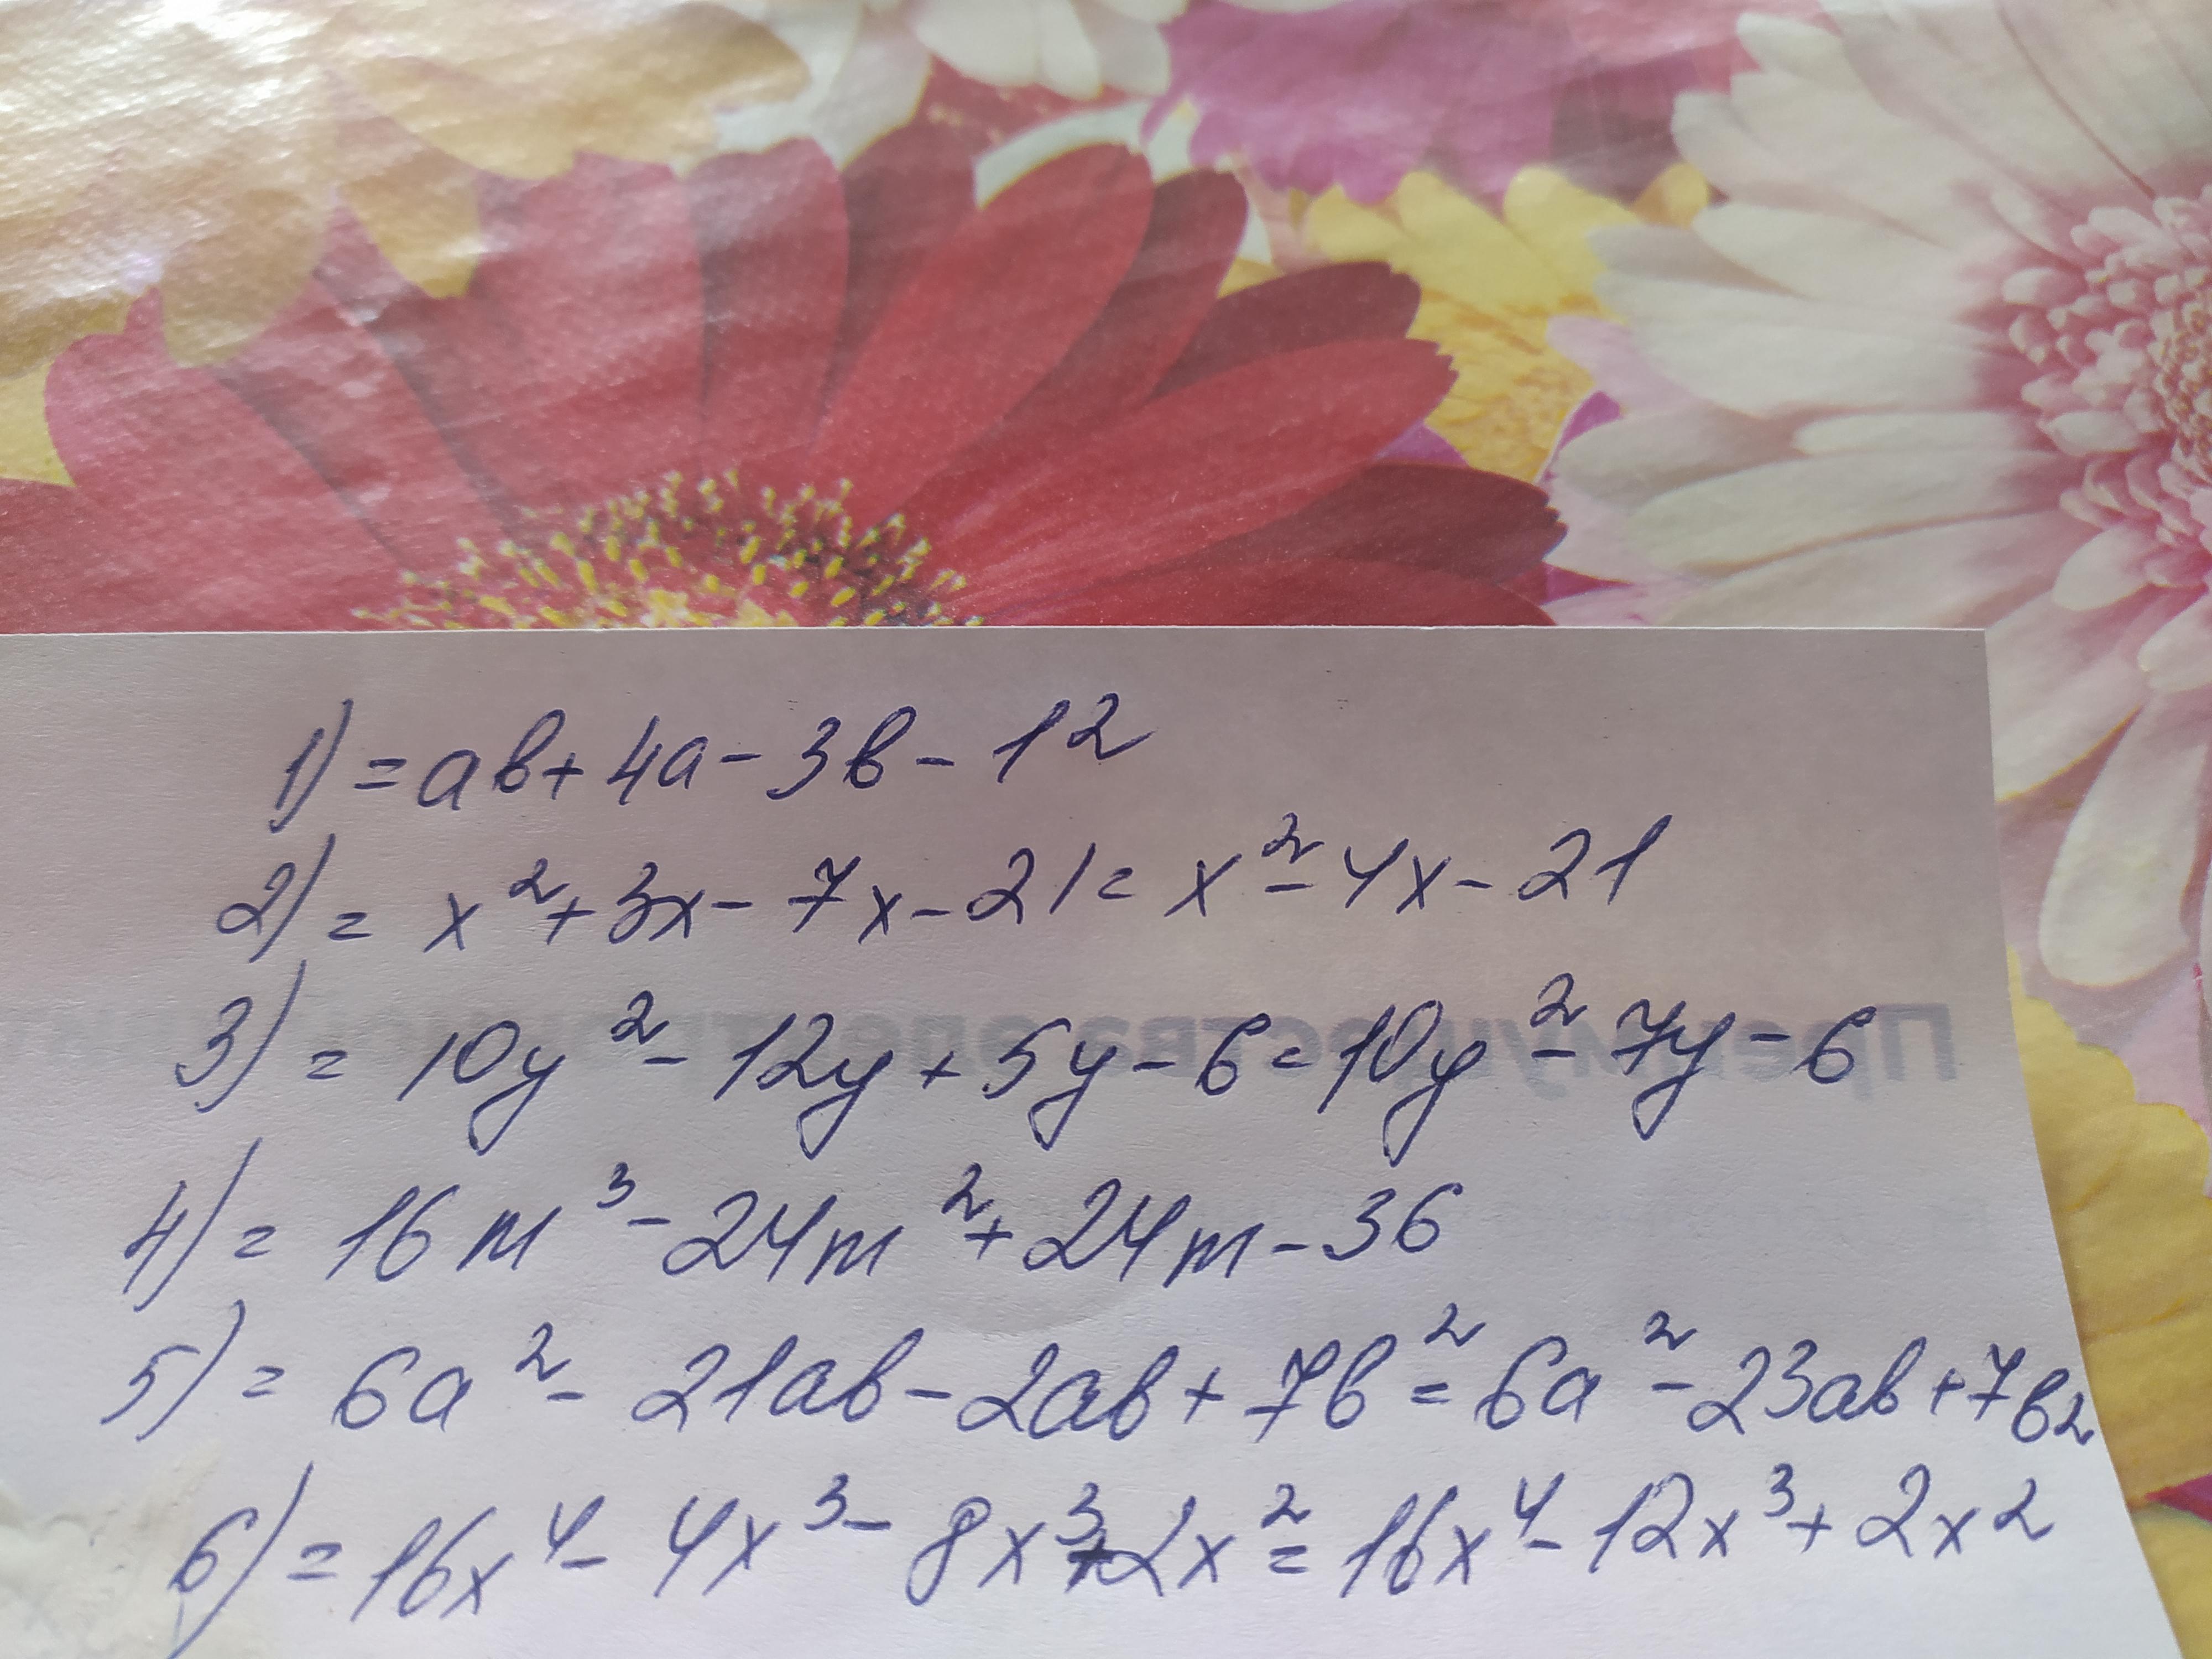 1) = ab + 4a - 3b - 12
2) = x² + 3x - 7x - 21 = x² - 4x - 21
3) = 10y² - 12y + 5y - 6 = 10y² - 7y - 6
4) = 16m³ - 24m² + 24m - 36
5) = 6a² - 21ab - 2ab + 7b² = 6a² - 23ab + 7b2
6) = 16x⁴ - 4x³ - 8x³ + 2x² = 16x⁴ - 12x³ + 2x²